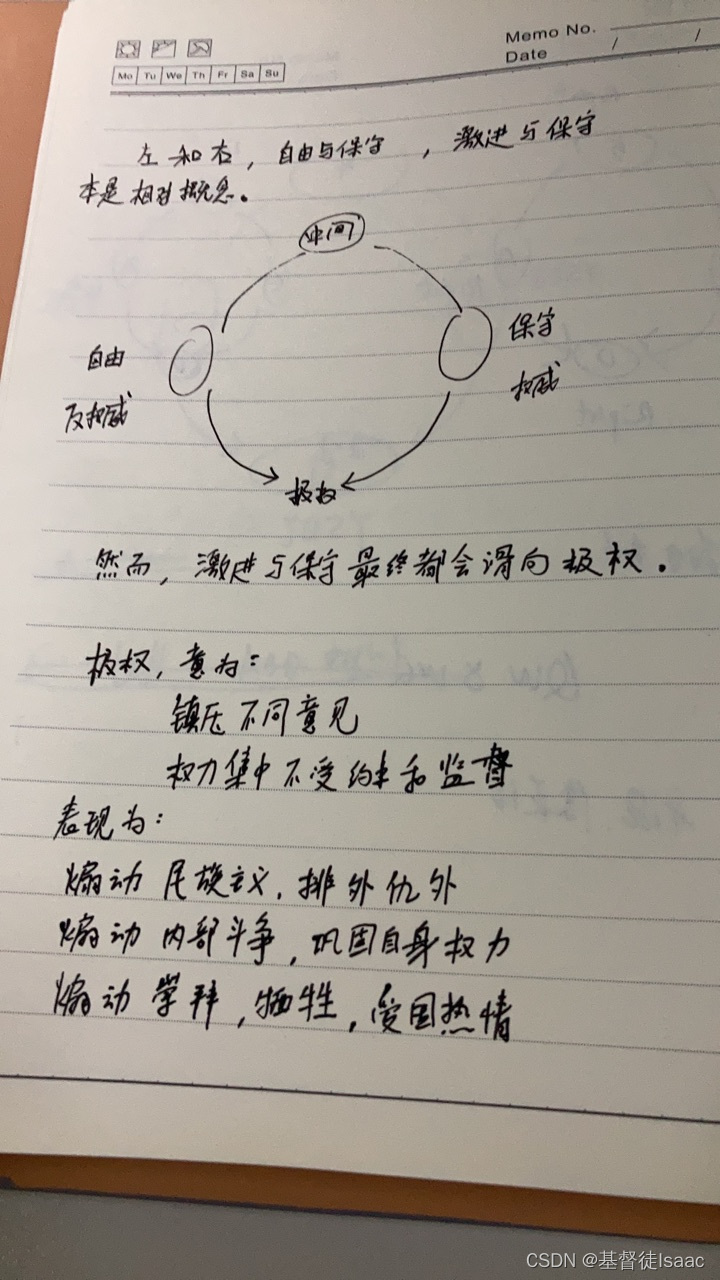 Memo No.
Date / /
Mo Tu We Th Fr Sa Su
左和右，自由与保守，激进与保守
本是相对概念。
中间
自由
反权威
保守
权威
极权
然而，激进与保守最终都会滑向极权．
极权，意为：
镇压不同意见
权力集中不受约束和监督
表现为：
煽动民族主义．排外仇外
煽动内部斗争，巩固自身权力
煽动崇拜，牺牲，爱国热情
CSDN @基督徒Isaac